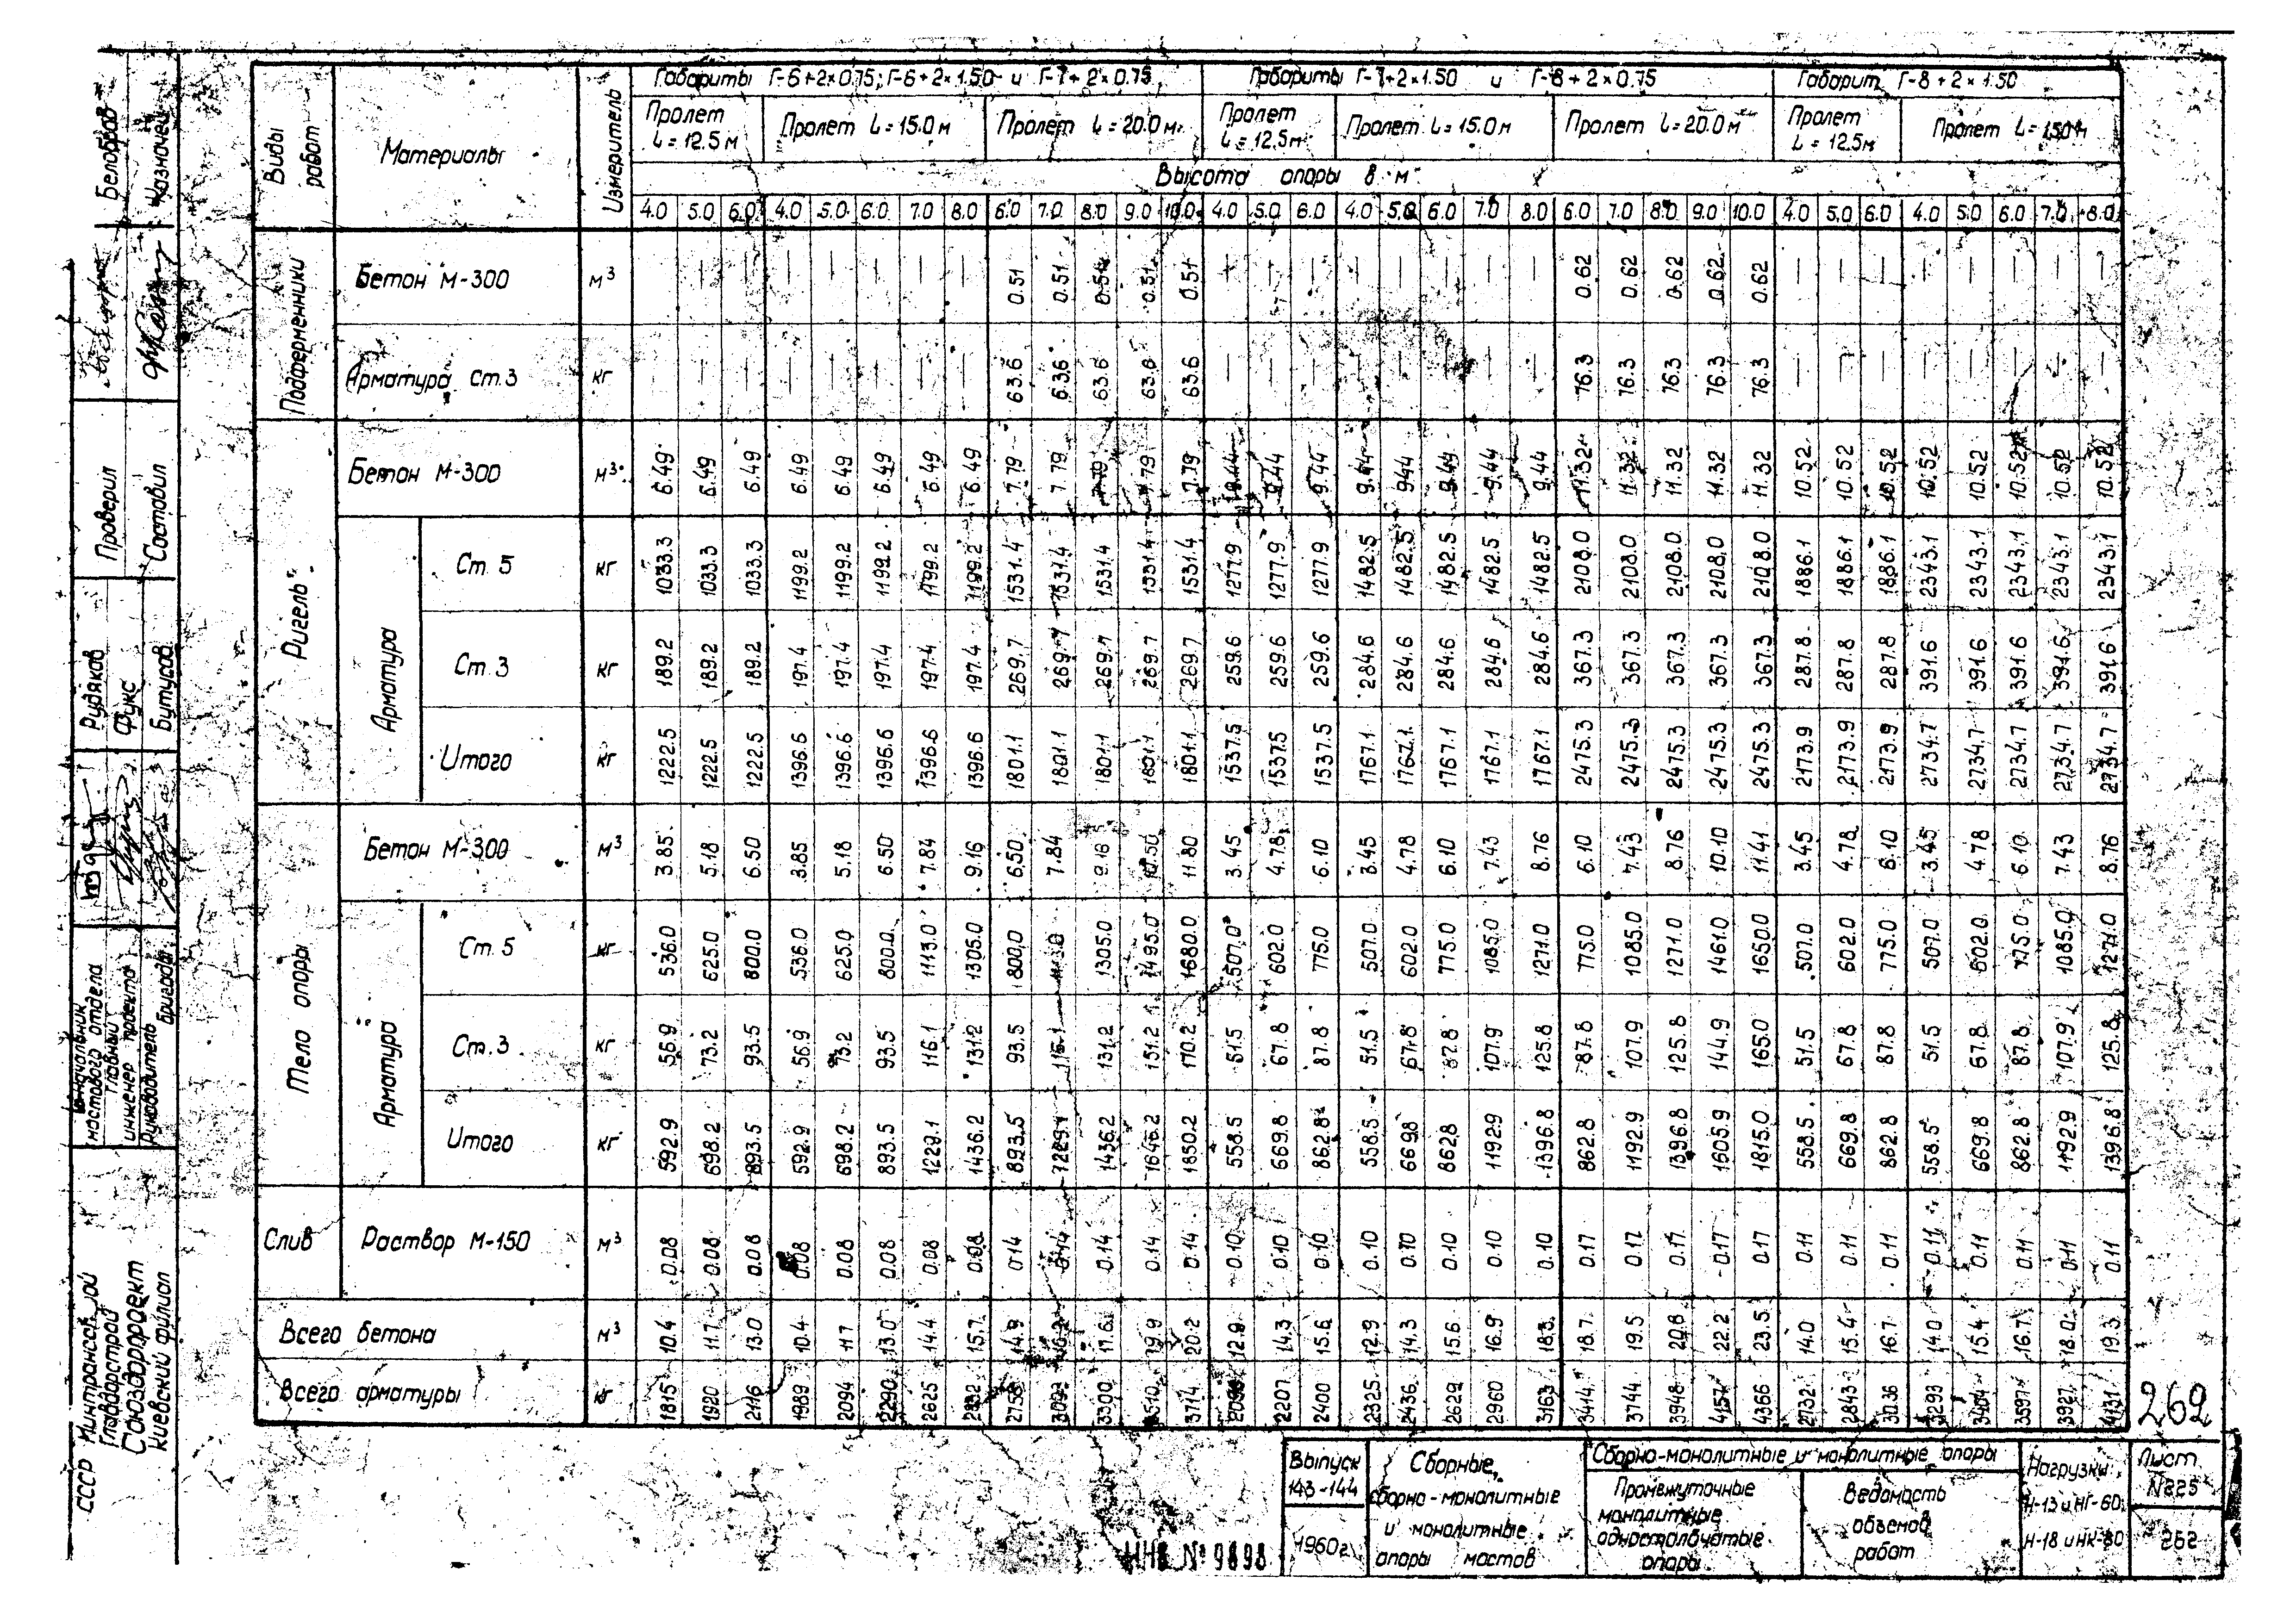 Габариты Г-6+2×0.75; Г-6+2×1.50 и Г-7+2×0.75 Габариты Г-7+2×1.50 и Г-8+2×0.75 Габарит Г-8+2×1.50
Виды работ Материалы Измеритель
Пролет L=12.5м Пролет L=15.0м Пролет L=20.0м Пролет L=12.5м Пролет L=15.0м Пролет L=20.0м Пролет L=12.5м Пролет L=15.0м
Высота опоры в м
4.0 5.0 6.0 4.0 5.0 6.0 7.0 8.0 6.0 7.0 8.0 9.0 10.0 4.0 5.0 6.0 4.0 5.0 6.0 7.0 8.0 6.0 7.0 8.0 9.0 10.0 4.0 5.0 6.0 4.0 5.0 6.0 7.0 8.0
Подферменники
Бетон М-300 м³ — — — — — — — — 0.51 0.51 0.51 0.51 0.51 — — — — — — — — 0.62 0.62 0.62 0.62 0.62 — — — — — — — —
Арматура Ст.3 кг — — — — — — — — 63.6 63.6 63.6 63.6 63.6 — — — — — — — — 76.3 76.3 76.3 76.3 76.3 — — — — — — — —
Ригель
Бетон М-300 м³ 6.49 6.49 6.49 6.49 6.49 6.49 6.49 6.49 7.79 7.79 7.79 7.79 7.79 9.44 9.44 9.44 9.44 9.44 9.44 9.44 9.44 11.32 11.32 11.32 11.32 11.32 10.52 10.52 10.52 10.52 10.52 10.52 10.52 10.52
Арматура
Ст. 5 кг 1033.3 1033.3 1033.3 1199.2 1199.2 1199.2 1199.2 1199.2 1531.4 1531.4 1531.4 1531.4 1531.4 1277.9 1277.9 1277.9 1482.5 1482.5 1482.5 1482.5 1482.5 2108.0 2108.0 2108.0 2108.0 2108.0 1886.1 1886.1 1886.1 2343.1 2343.1 2343.1 2343.1 2343.1
Ст.3 кг 189.2 189.2 189.2 197.4 197.4 197.4 197.4 197.4 269.7 269.7 269.7 269.7 269.7 259.6 259.6 259.6 284.6 284.6 284.6 284.6 284.6 367.3 367.3 367.3 367.3 367.3 287.8 287.8 287.8 391.6 391.6 391.6 391.6 391.6
Итого кг 1222.5 1222.5 1222.5 1396.6 1396.6 1396.6 1396.6 1396.6 1801.1 1801.1 1801.1 1801.1 1801.1 1537.5 1537.5 1537.5 1767.1 1767.1 1767.1 1767.1 1767.1 2475.3 2475.3 2475.3 2475.3 2475.3 2173.9 2173.9 2173.9 2734.7 2734.7 2734.7 2734.7 2734.7
Тело опоры
Бетон М-300 м³ 3.85 5.18 6.50 3.85 5.18 6.50 7.84 9.16 6.50 7.84 9.16 10.50 11.80 3.45 4.78 6.10 3.45 4.78 6.10 7.43 8.76 6.10 7.43 8.76 10.10 11.41 3.45 4.78 6.10 3.45 4.78 6.10 7.43 8.76
Арматура
Ст. 5 кг 536.0 625.0 800.0 536.0 625.0 800.0 1113.0 1305.0 800.0 1305.0 1495.0 1680.0 507.0 602.0 775.0 507.0 602.0 775.0 1085.0 1271.0 775.0 1085.0 1271.0 1461.0 1650.0 507.0 602.0 775.0 507.0 602.0 775.0 1085.0 1271.0
Ст.3 кг 56.9 73.2 93.5 56.9 73.2 93.5 116.1 131.2 93.5 116.1 131.2 151.2 170.2 51.5 67.8 87.8 51.5 67.8 87.8 107.9 125.8 87.8 107.9 125.8 144.9 165.0 51.5 67.8 87.8 51.5 67.8 87.8 107.9 125.8
Итого кг 592.9 698.2 893.5 592.9 698.2 893.5 1229.1 1436.2 893.5 1229.1 1436.2 1646.2 1850.2 558.5 669.8 862.8 558.5 669.8 862.8 1192.9 1396.8 862.8 1192.9 1396.8 1605.9 1815.0 558.5 669.8 862.8 558.5 669.8 862.8 1192.9 1396.8
Слив Раствор М-150 м³ 0.08 0.08 0.08 0.08 0.08 0.08 0.08 0.08 0.14 0.14 0.14 0.14 0.14 0.10 0.10 0.10 0.10 0.10 0.10 0.10 0.10 0.17 0.17 0.17 0.17 0.17 0.11 0.11 0.11 0.11 0.11 0.11 0.11 0.11
Всего бетона м³ 10.4 11.7 13.0 10.4 11.7 13.0 14.4 15.7 14.9 17.6 20.2 12.9 14.3 15.6 12.9 14.3 15.6 16.9 18.3 18.7 19.5 20.8 22.2 23.5 14.0 15.4 16.7 14.0 15.4 16.7 18.0 19.3
Всего арматуры кг 1815 1920 2116 1989 2094 2290 2625 2832 2758 3093 3300 3510 3714 2096 2207 2400 2325 2436 2629 2960 3163 3414 3744 3948 4157 4366 2732 2843 3036 3293 3404 3597 3927 4131
262
Выпуск 143-144
1960г.
Сборные,
сборно-монолитные
и монолитные
опоры мостов
Сборно-монолитные и монолитные опоры
Промежуточные
монолитные
одностолбчатые
опоры
Ведомость
объемов
работ
Нагрузки
Н-13 и НГ-60
Н-18 и НК-80
Лист
№225
262
ИНВ № 9898
Белобров
Казначей
Проверил
Составил
Рудяков
Фукс
Бутусов
Начальник
мостового отдела
Главный
инженер проекта
Руководитель
бригады
СССР Минтрансстрой
Главдорстрой
Союздорпроект
Киевский филиал